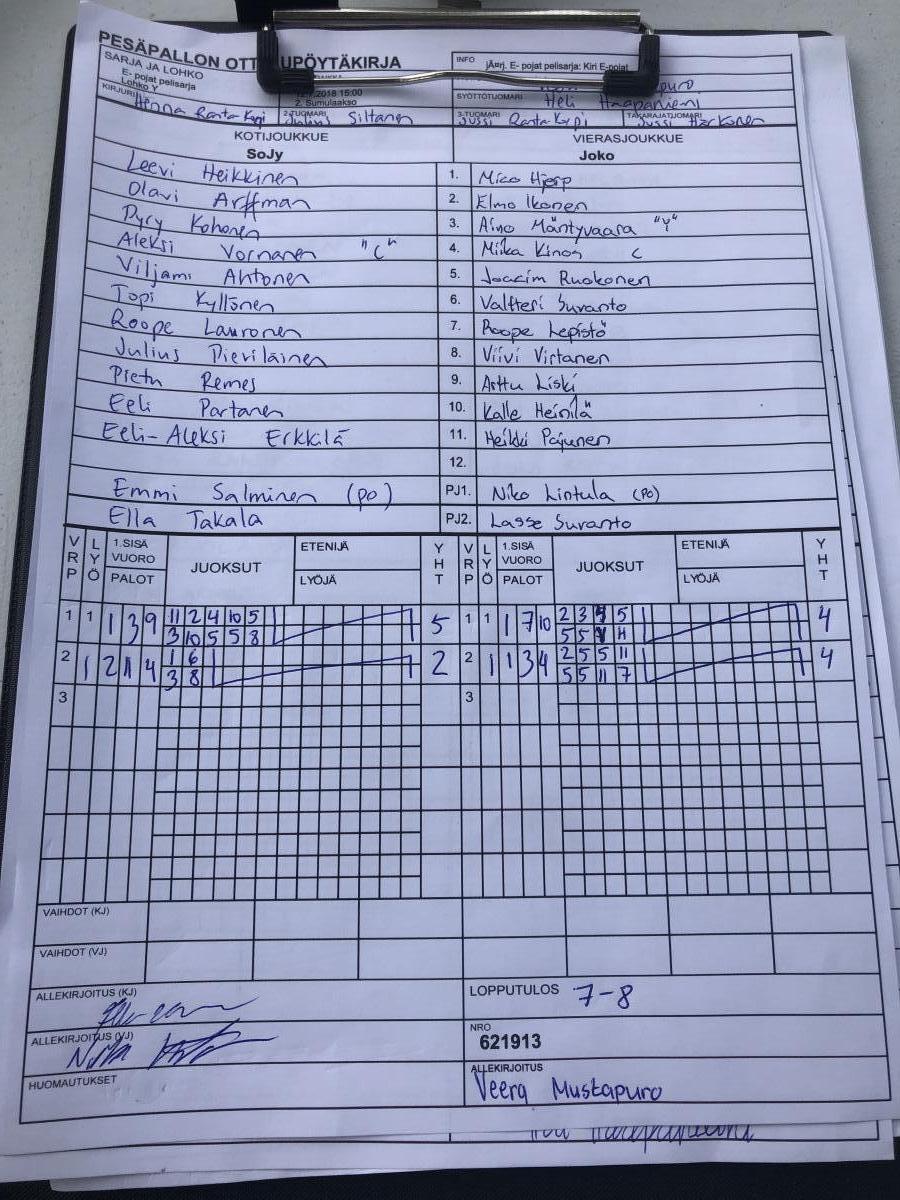 PESÄPALLON OTT UPÖYTÄKIRJA
INFO jÄerj. E- pojat pelisarja: Kiri E-pojat
SARJA JA LOHKO
E- pojat pelisarja
Lohko Y
2018 15:00
2. Sumulaakso
puro
SYÖTTÖTUOMARI Heli Haapaniemi
KIRJURI Henna Ranta-Kypi
2-TUOMARI Julius Siltanen
3-TUOMARI Jussi Ranta-Kypi
TAKARAJATUOMARI Jussi Harkonen
KOTIJOUKKUE VIERASJOUKKUE
SoJy Joko
Leevi Heikkinen 1. Mico Hjerp
Olavi Arffman 2. Elmo Ikonen
Pyry Kohonen 3. Aino Mäntyvaara "Y"
Aleksi Vornanen "C" 4. Miika Kinos C
Viljami Ahtonen 5. Joacim Ruokonen
Topi Kyllönen 6. Valtteri Suvanto
Roope Lauronen 7. Roope Lepistö
Julius Pieviläinen 8. Viivi Virtanen
Remes 9. Arttu Liski
Eeli Partanen 10. Kalle Heinilä
Eeli-Aleksi Erkkilä 11. Heikki Pajunen
12.
Emmi Salminen (po) PJ1. Niko Lintula (PO)
Ella Takala PJ2. Lasse Suvanto
VRP LYÖ 1.SISÄ VUORO PALOT JUOKSUT ETENIJÄ LYÖJÄ YHT VRP LYÖ 1.SISÄ VUORO PALOT JUOKSUT ETENIJÄ LYÖJÄ YHT
1 1 1 3 9 11 2 4 10 5 5 1 1 1 7 10 2 3 5 4
3 10 5 5 8 5 5 11
2 1 2 11 4 1 6 2 2 1 1 3 4 2 5 5 11 4
3 8 5 5 11 7
3 3
VAIHDOT (KJ)
VAIHDOT (VJ)
ALLEKIRJOITUS (KJ)
LOPPUTULOS 7-8
ALLEKIRJOITUS (VJ)
NRO
621913
HUOMAUTUKSET
ALLEKIRJOITUS
Veera Mustapuro